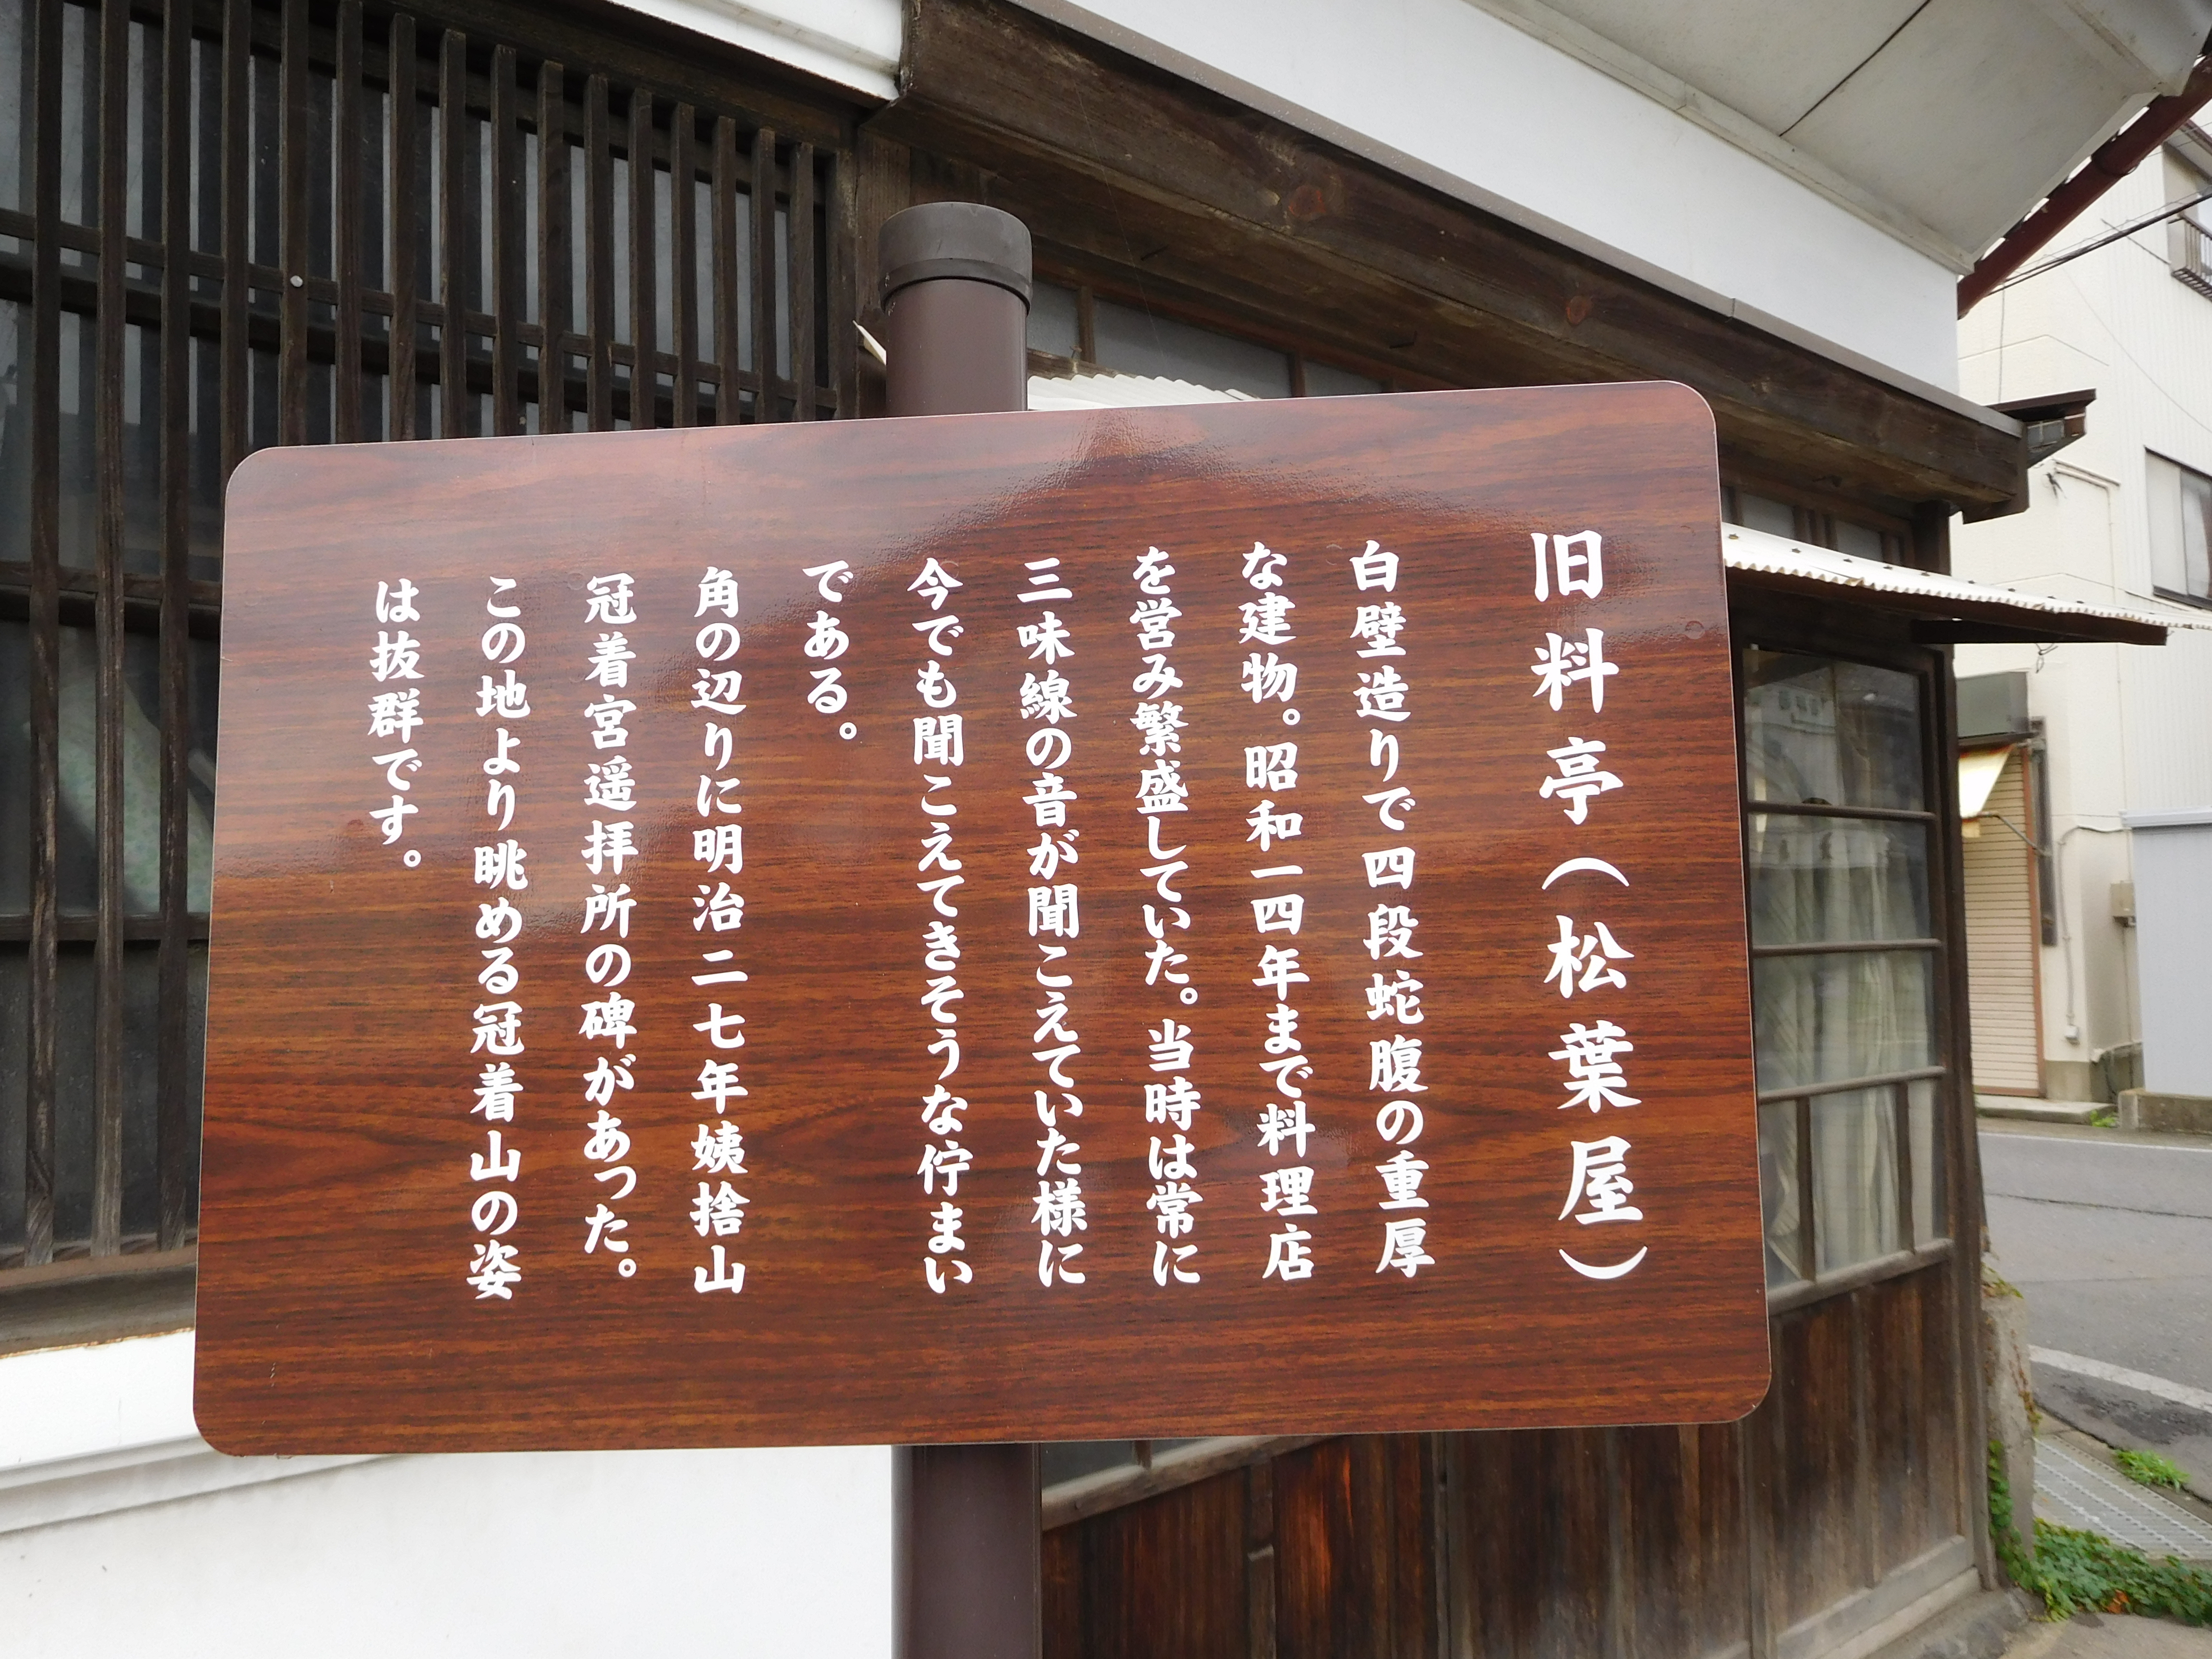 旧料亭(松葉屋)
白壁造りで四段蛇腹の重厚
な建物。昭和一四年まで料理店
を営み繁盛していた。当時は常に
三味線の音が聞こえていた様に
今でも聞こえてきそうな佇まい
である。
角の辺りに明治二七年姨捨山
冠着宮遥拝所の碑があった。
この地より眺める冠着山の姿
は抜群です。